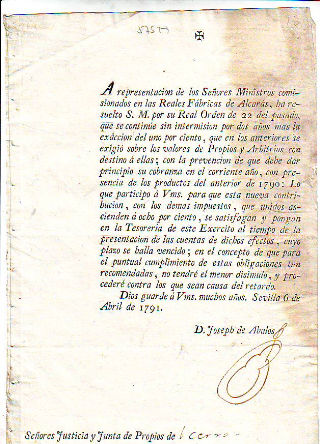 ✠
A representacion de los Señores Ministros comi-
sionados en las Reales Fábricas de Alcaráz, ha re-
suelto S. M. por su Real Orden de 22 del pasado,
que se continúe sin intermision por dos años mas la
exâccion del uno por ciento, que en los anteriores se
exigió sobre los valores de Propios y Arbitrios con
destino á ellas; con la prevencion de que debe dar
principio su cobranza en el corriente año, con pre-
sencia de los productos del anterior de 1790: Lo
que participo á Vms. para que esta nueva contri-
bucion, con los demas impuestos, que unidos as-
cienden á ocho por ciento, se satisfagan y pongan
en la Tesorería de este Exercito al tiempo de la
presentacion de las cuentas de dichos efectos, cuyo
plazo se halla vencido; en el concepto de que para
el puntual cumplimiento de estas obligaciones tan
recomendadas, no tendré el menor disimulo, y pro-
cederé contra los que sean causa del retardo.
Dios guarde á Vms. muchos años. Sevilla 6 de
Abril de 1791.
D. Joseph de Abalos
Señores Justicia y Junta de Propios de l cerro